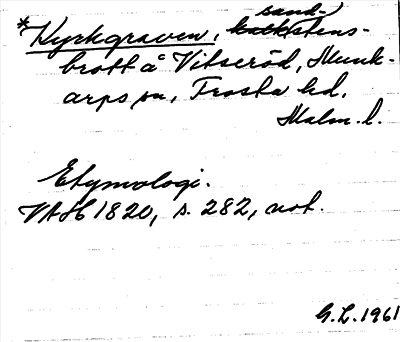 sand-
*Kyrkgraven, kalkstens-
brott å Vitseröd, Munk-
arps sn, Frosta hd.
Malm. l.
Etymologi.
VAH 1820, s. 282, not.
G.L. 1961